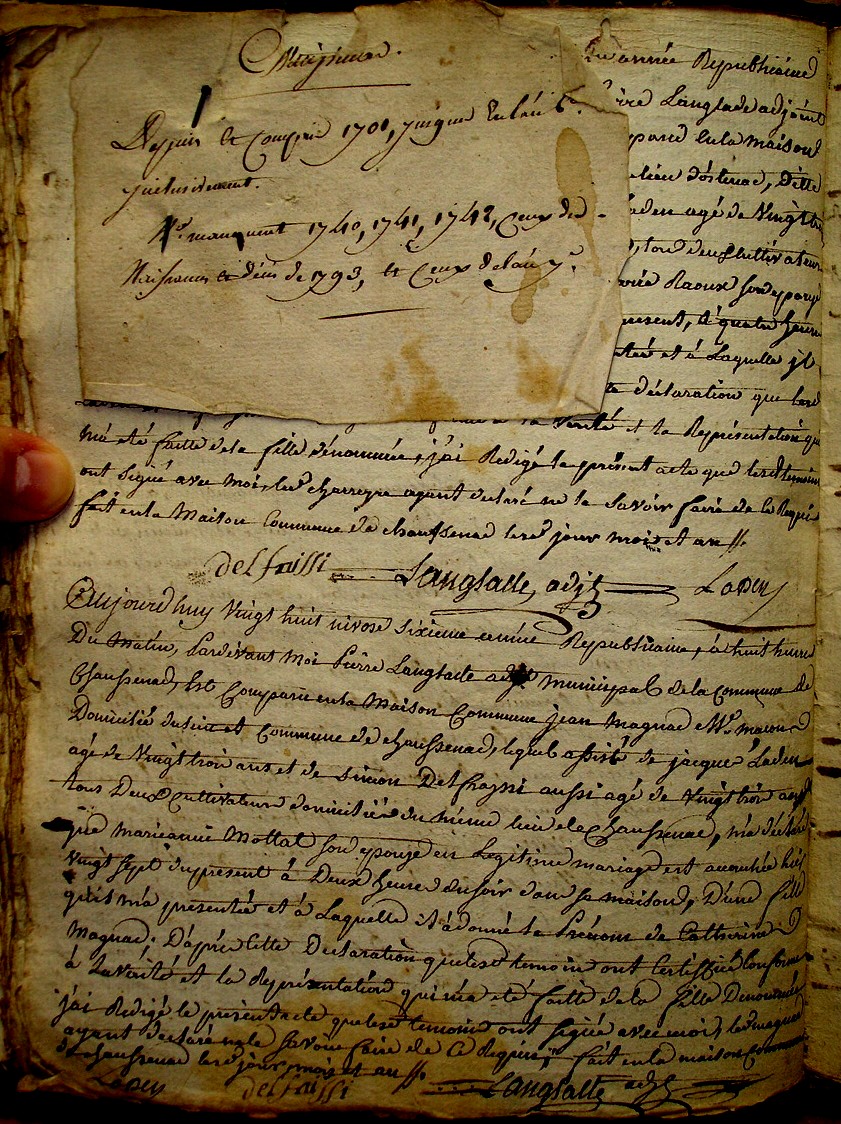 Depuis et Compris 1701, jusques En l'an 6e.
jnclusivement.
Nta. manquent 1740, 1741, 1742, Ceux des
Naissances et décès de 1793, et Ceux de l'an 7e.
année Republicaine
Langlade adjoint
en la maison
lieu
agé de Vingt
cultivateurs
Raoux son epouse
present, à quatre heures
et à Laquelle jl
declaration que les
verité et la Représentation qui
m'a été faitte de la fille dénommée, j'ai Redigé le présent acte que lesd temoins
ont Signé avec moi, led charreyre ayant declaré ne le Savoir faire de ce Requis
fait en la Maison Commune de chaussenac lesd jour mois et an
delfraissi Langlade, adjt Laden
Aujourd'huy Vingt huit nivose Sixieme année Republicaine, à huit heures
Du Matin, Pardevant Moi Pierre Langlade adjt Municipal de la Commune de
Chaussenac, Est Comparu en la Maison Commune jean Magnac maçon
Domicilié dulieu et Commune de chaussenac, lequel assisté de jacques Laden
agé de Vingt trois ans et de Simon Delfraissi aussi agé de Vingt trois ans
tous Deux Cultivateurs domiciliés du même lieu de Chaussenac, m'a déclaré
que marianne Mottat son epouze en Legitime mariage est accouchée hier
Vingt Sept du present à Deux heures du soir dans sa maison, D'une fille
qu'il m'a presentée et à Laquelle il a donné le Prénom de Catherine
Magnac. D'après Cette Declaration que lesd temoins ont Certiffié Conforme
à la vérité et la Représentation qui m'a eté faitte de la fille Denommée
j'ai Redigé le present acte que lesd temoins ont signé avec moi, led magnac
ayant declaré ne le Savoir faire de Ce Requis, fait en la maison Commune
de chaussenac lesd jour mois et an
Laden delfraissi Langlade adjt